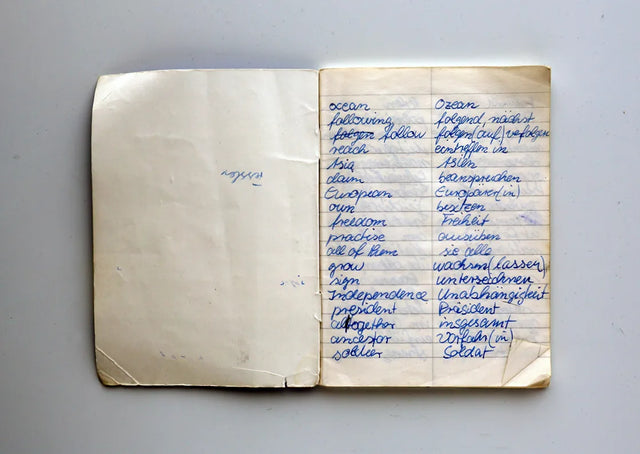 ocean Ozean
following folgend, nächst
folgen follow folgen (auf) verfolgen
reach eintreffen in
Asia Asien
claim beanspruchen
European Europäer(in)
own besitzen
freedom Freiheit
practise ausüben
all of them sie alle
grow wachsen (lassen)
sign unterzeichnen
Independence Unabhängigkeit
president Präsident
altogether insgesamt
ancestor Vorfahr(in)
soldier Soldat